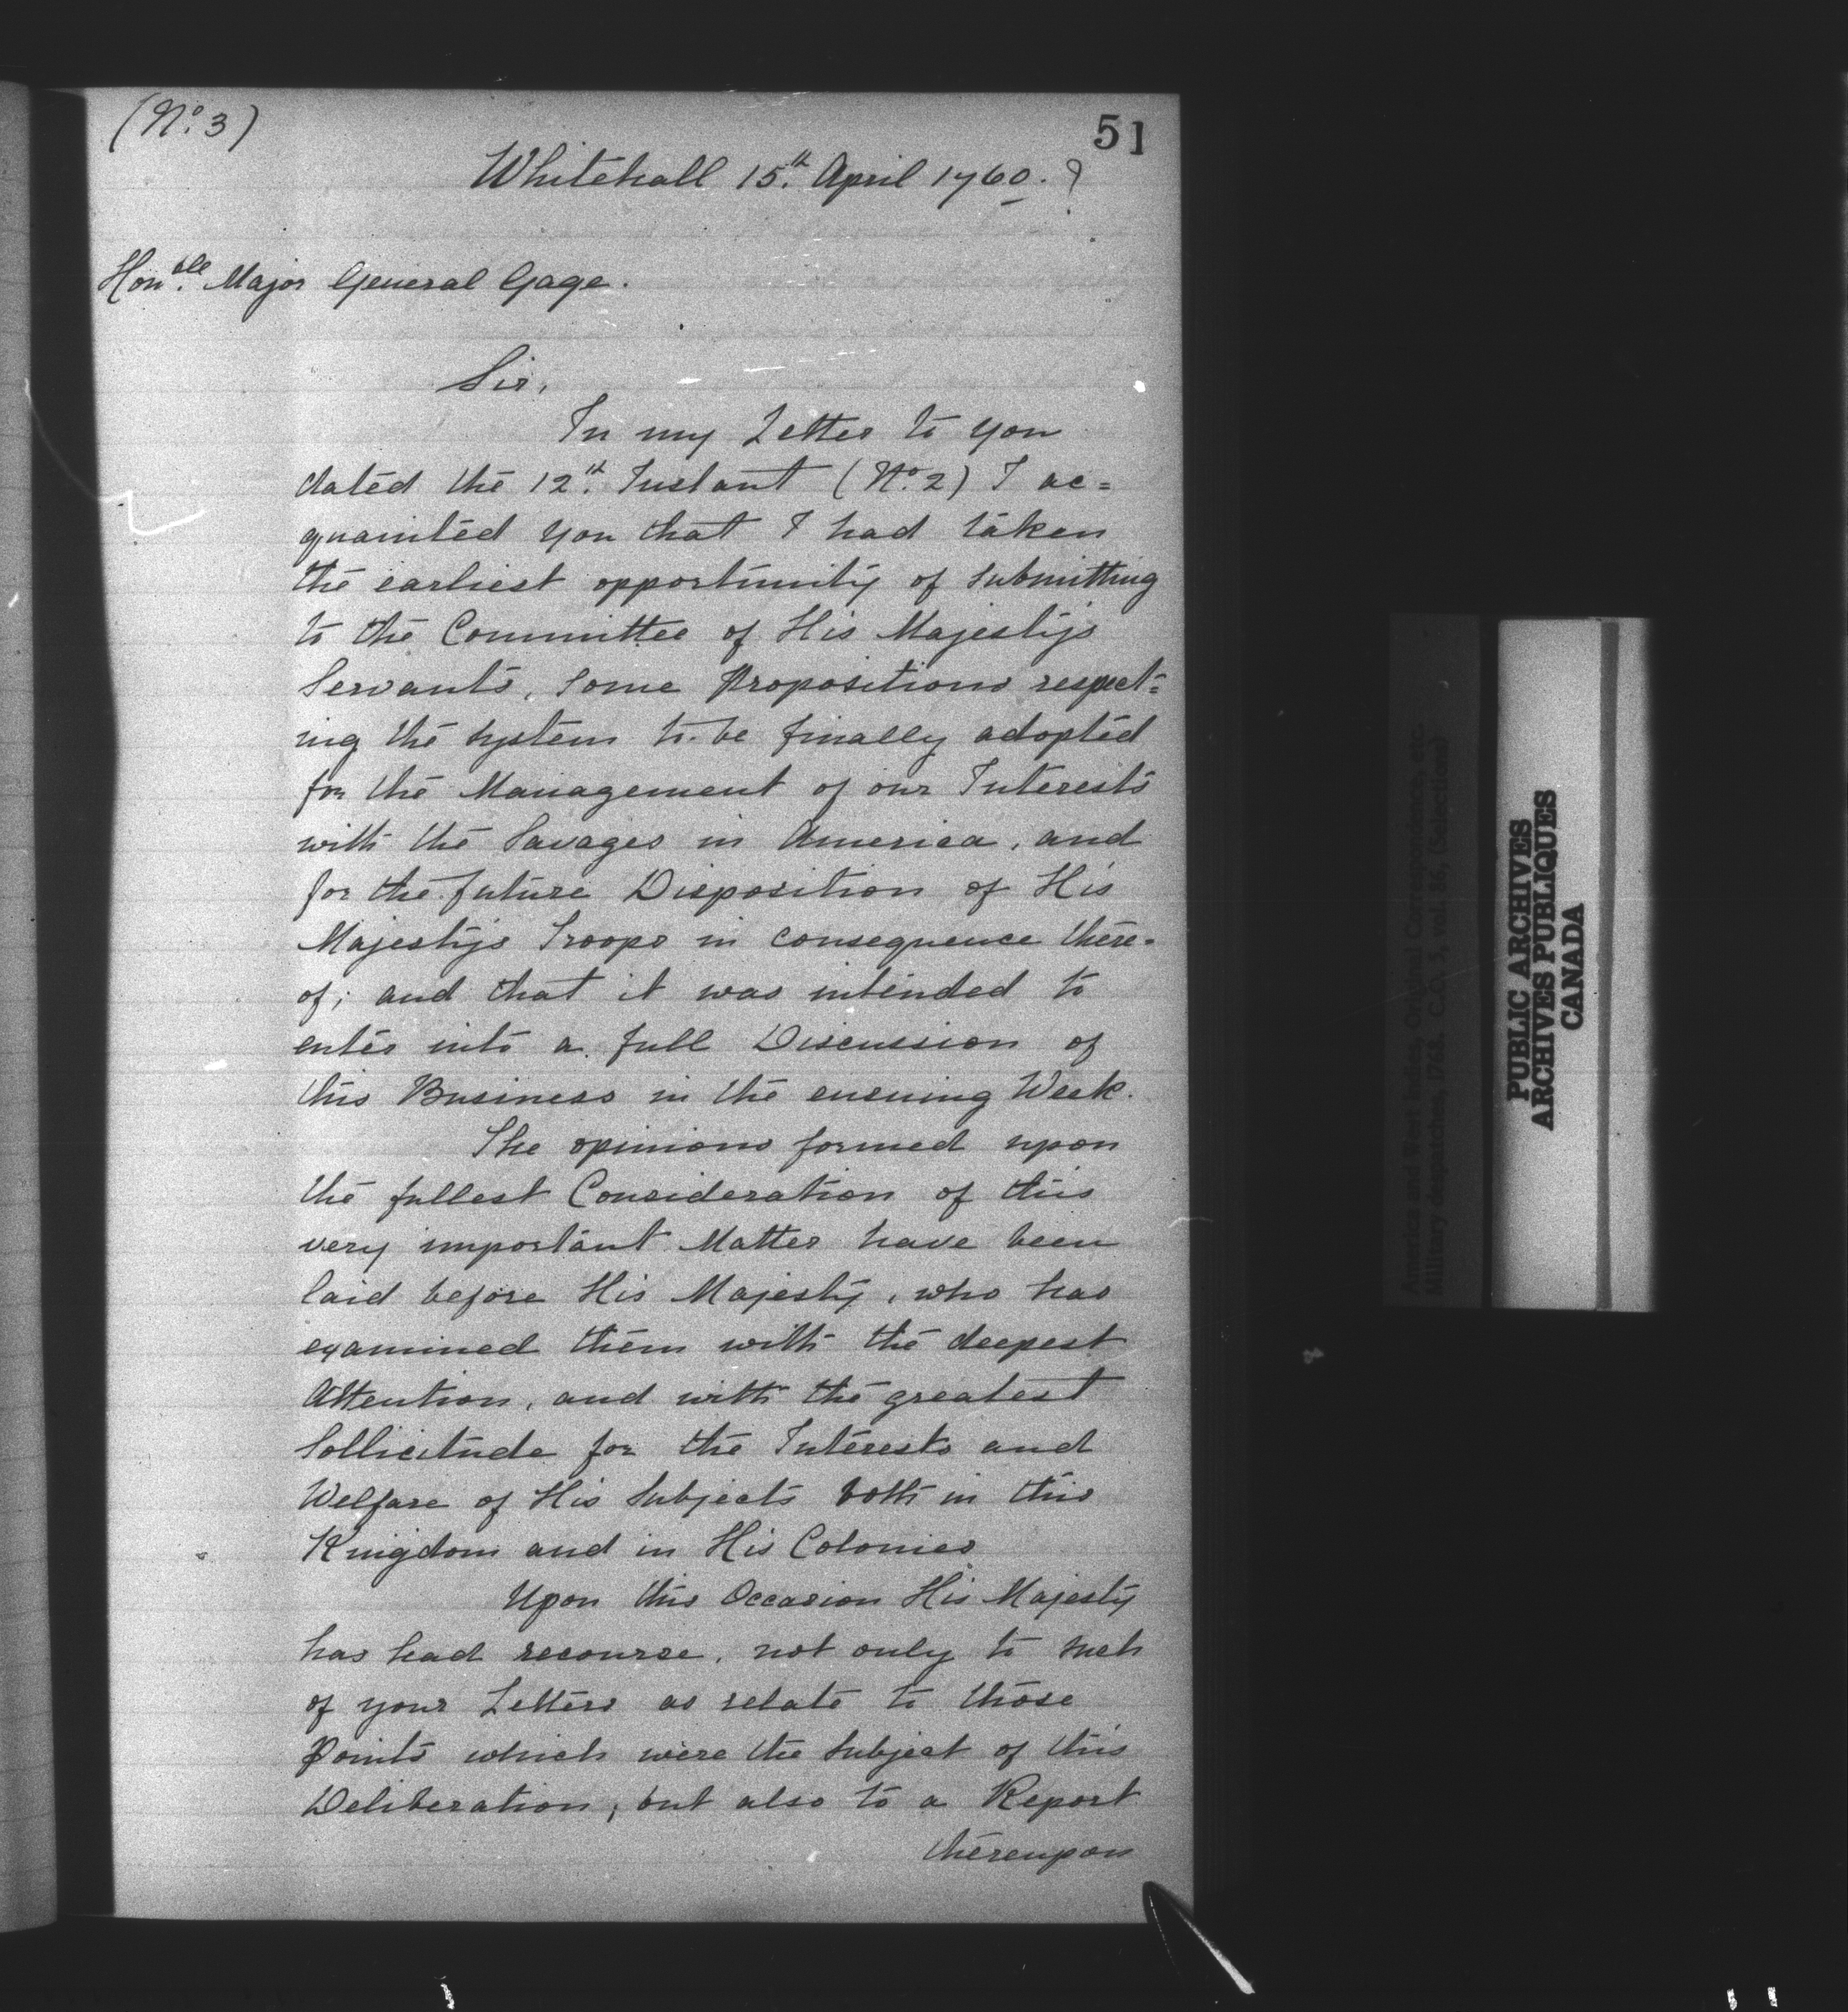 (No. 3)
51
Whitehall 15th. April 1760. ?
Honble. Major General Gage.
Sir,
In my Letter to you
dated the 12th. Instant (No. 2) I ac=
quainted you that I had taken
the earliest opportunity of submitting
to the Committee of His Majesty's
Servants, some Propositions respect=
ing the system to be finally adopted
for the Management of our Interests
with the Savages in America, and
for the future Disposition of His
Majesty's Troops in consequence there-
of; and that it was intended to
enter into a full Discussion of
this Business in the ensuing Week.
The opinions formed upon
the fullest Consideration of this
very important Matter have been
laid before His Majesty, who has
examined them with the deepest
Attention, and with the greatest
Sollicitude for the Interests and
Welfare of His Subjects both in this
Kingdom and in His Colonies
Upon this Occasion His Majesty
has had recourse, not only to such
of your Letters as relate to those
Points which were the Subject of this
Deliberation, but also to a Report
thereupon
America and West Indies, Original Correspondence, etc.
Military despatches, 1768. C.O. 5, vol. 86, (Selections)
PUBLIC ARCHIVES
ARCHIVES PUBLIQUES
CANADA